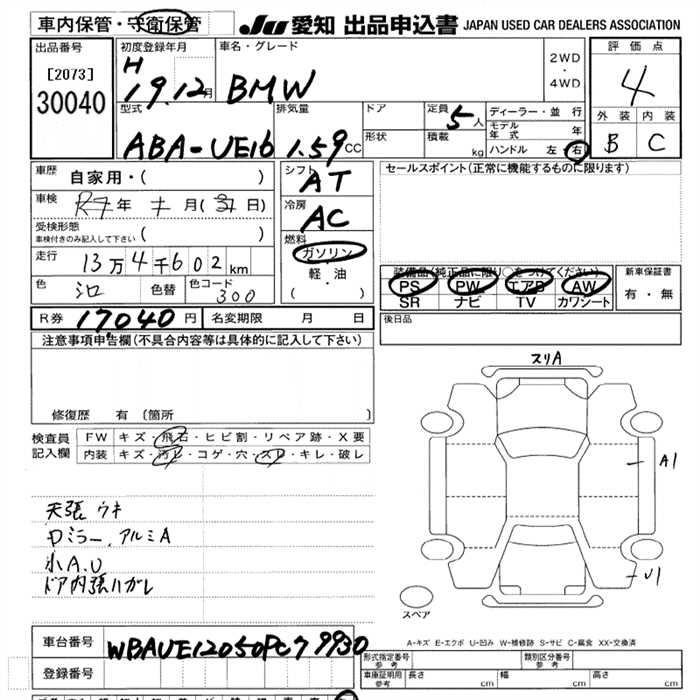 車内保管・守衛保管
JU 愛知 出品申込書 JAPAN USED CAR DEALERS ASSOCIATION
出品番号
[2073]
30040
初度登録年月
H
19.12月
車名・グレード
BMW
2WD
・
4WD
評価点
4
外装 内装
B C
型式
ABA-UE16
排気量
1.59CC
ドア
形状
定員 5人
積載 kg
ディーラー・並行
モデル年式 年
ハンドル 左・右
車歴 自家用・( )
車検 年 月( 日)
受検形態
車検付きのみ記入して下さい ( )
走行 13万4千602km
色 シロ 色替 色コード 300
シフト AT
冷房 AC
燃料
ガソリン
軽・油
( ・ )
セールスポイント(正常に機能するものに限ります)
装備品(純正品に限り○をつけてください)
PS PW エアB AW
SR ナビ TV カワシート
新車保証書
有・無
R券 17,040円 名変期限 月 日
後日品
注意事項申告欄(不具合内容等は具体的に記入して下さい)
修復歴 有 〔箇所
検査員
記入欄
FW キズ・飛石・ヒビ割・リペア跡・X要
内装 キズ・汚レ・コゲ・穴・スレ・キレ・破レ
天張ウキ
Dミラー、アルミA
小A.U
ドア内張ハガレ
スリA
A1
U1
スペア
A-キズ E-エクボ U-凹み W-補修跡 S-サビ C-腐食 XX-交換済
車台番号 WBAUE12050PC79930
登録番号
形式指定番号
参考
類別区分番号
参考
車庫証明用
参考
長さ cm 幅 cm 高さ cm